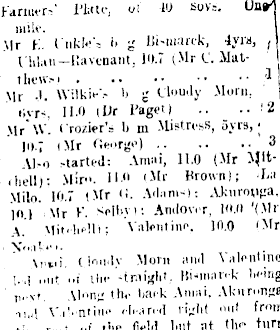 Farmers' Plate, of 40 sovs. One
mile.
Mr E. Cukle's b g Bismarck, 4yrs,
Uhlan—Ravenant, 10.7 (Mr C. Mat-
thews) .. .. .. .. 1
Mr J. Wilkie's b g Cloudy Morn,
6yrs, 11.0 (Dr Paget) .. .. 2
Mr W. Crozier's b m Mistress, 5yrs,
10.7 (Mr George) .. .. .. 3
Also started: Amai, 11.0 (Mr Mit-
chell); Miro, 11.0 (Mr Brown); La
Milo, 10.7 (Mr G. Adams); Akuronga,
10.1 (Mr F. Selby); Andover, 10.0 (Mr
A. Mitchell); Valentine, 10.0 (Mr
Noake).
Amai, Cloudy Morn and Valentine
led out of the straight, Bismarck being
next. Along the back Amai, Akuronga
and Valentine cleared right out from
the rest of the field but at the turn